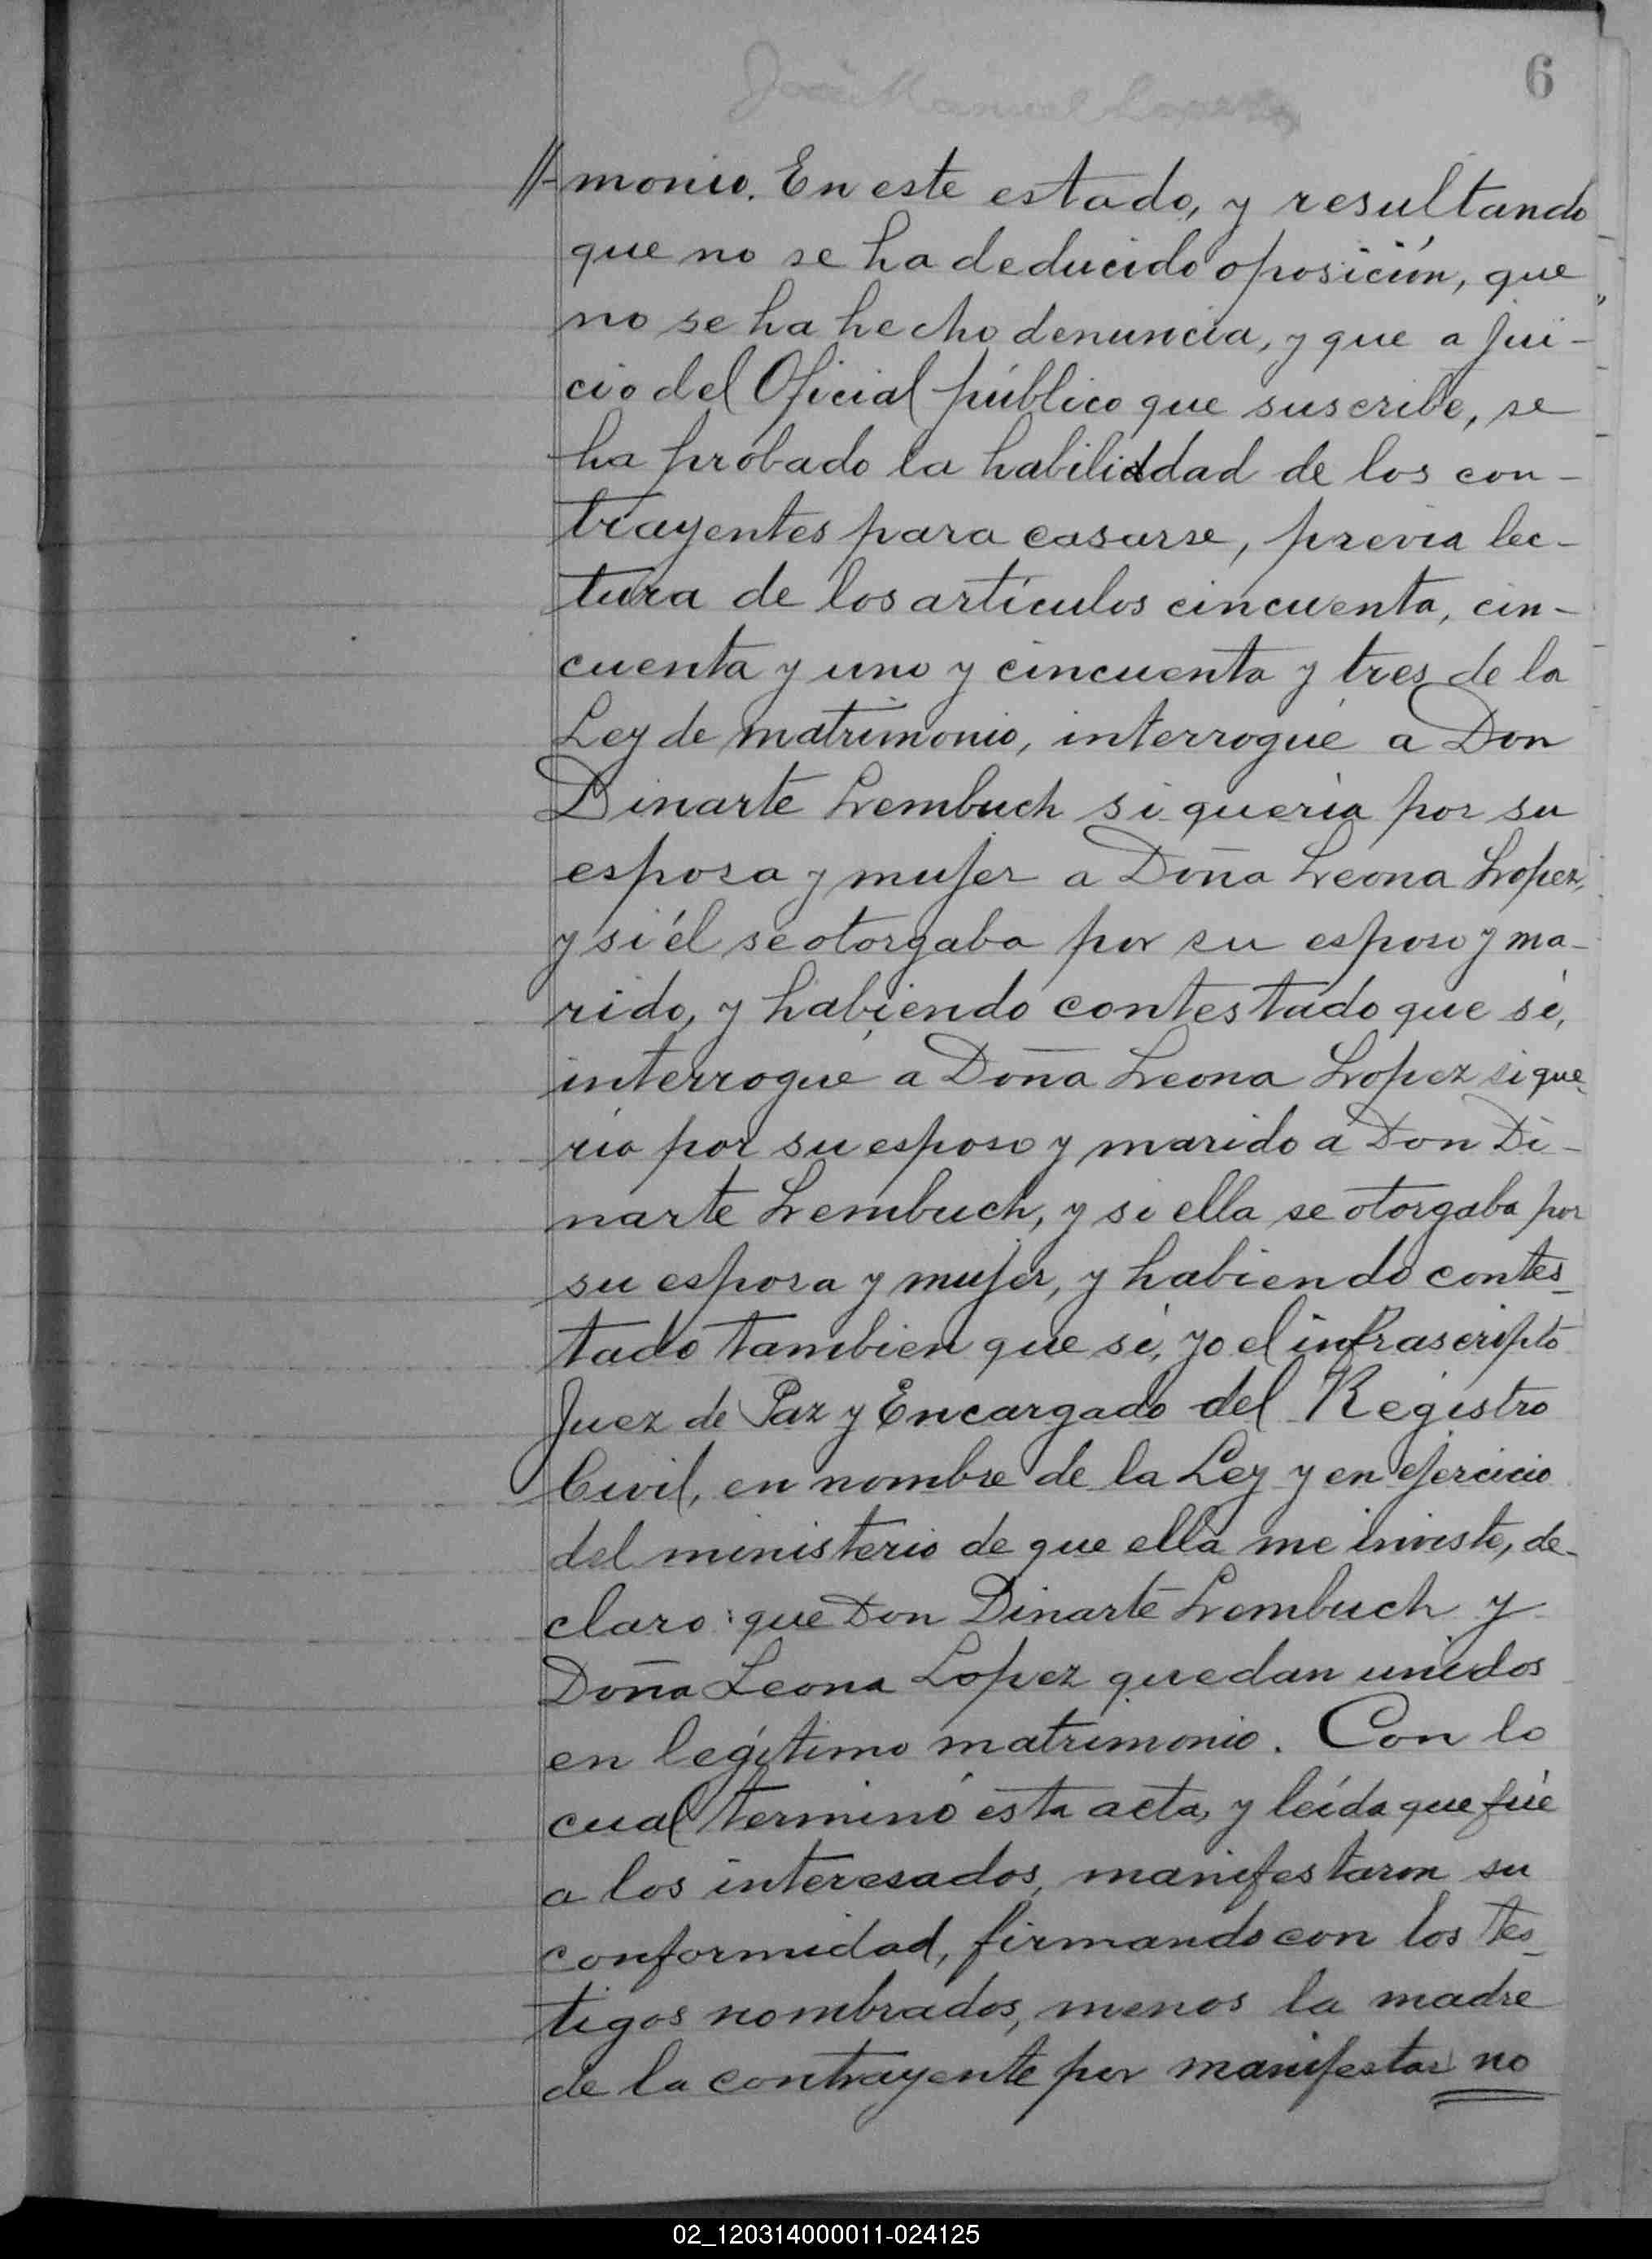 6
//-monio. En este estado, y resultando
que no se ha deducido oposición, que
no se ha hecho denuncia, y que a jui-
cio del Oficial público que suscribe, se
ha probado la habiliddad de los con-
trayentes para casarse, previa lec-
tura de los artículos cincuenta, cin-
cuenta y uno y cincuenta y tres de la
Ley de matrimonio, interrogué a Don
Dinarte Lembuch si quería por su
esposa y mujer a Doña Leona Lopez,
y si él se otorgaba por su esposo y ma-
rido, y habiendo contestado que sí,
interrogué a Doña Leona Lopez si que-
ría por su esposo y marido a Don Di-
narte Lembuch, y si ella se otorgaba por
su esposa y mujer, y habiendo contes-
tado tambien que sí, yo el infrascripto
Juez de Paz y Encargado del Registro
Civil, en nombre de la Ley y en ejercicio
del ministerio de que ella me inviste, de-
claro: que Don Dinarte Lembuch y
Doña Leona Lopez quedan unidos
en legítimo matrimonio. Con lo
cual terminó esta acta, y leída que fué
a los interesados, manifestaron su
conformidad, firmando con los tes-
tigos nombrados, menos la madre
de la contrayente por manifestar no
02_120314000011-024125